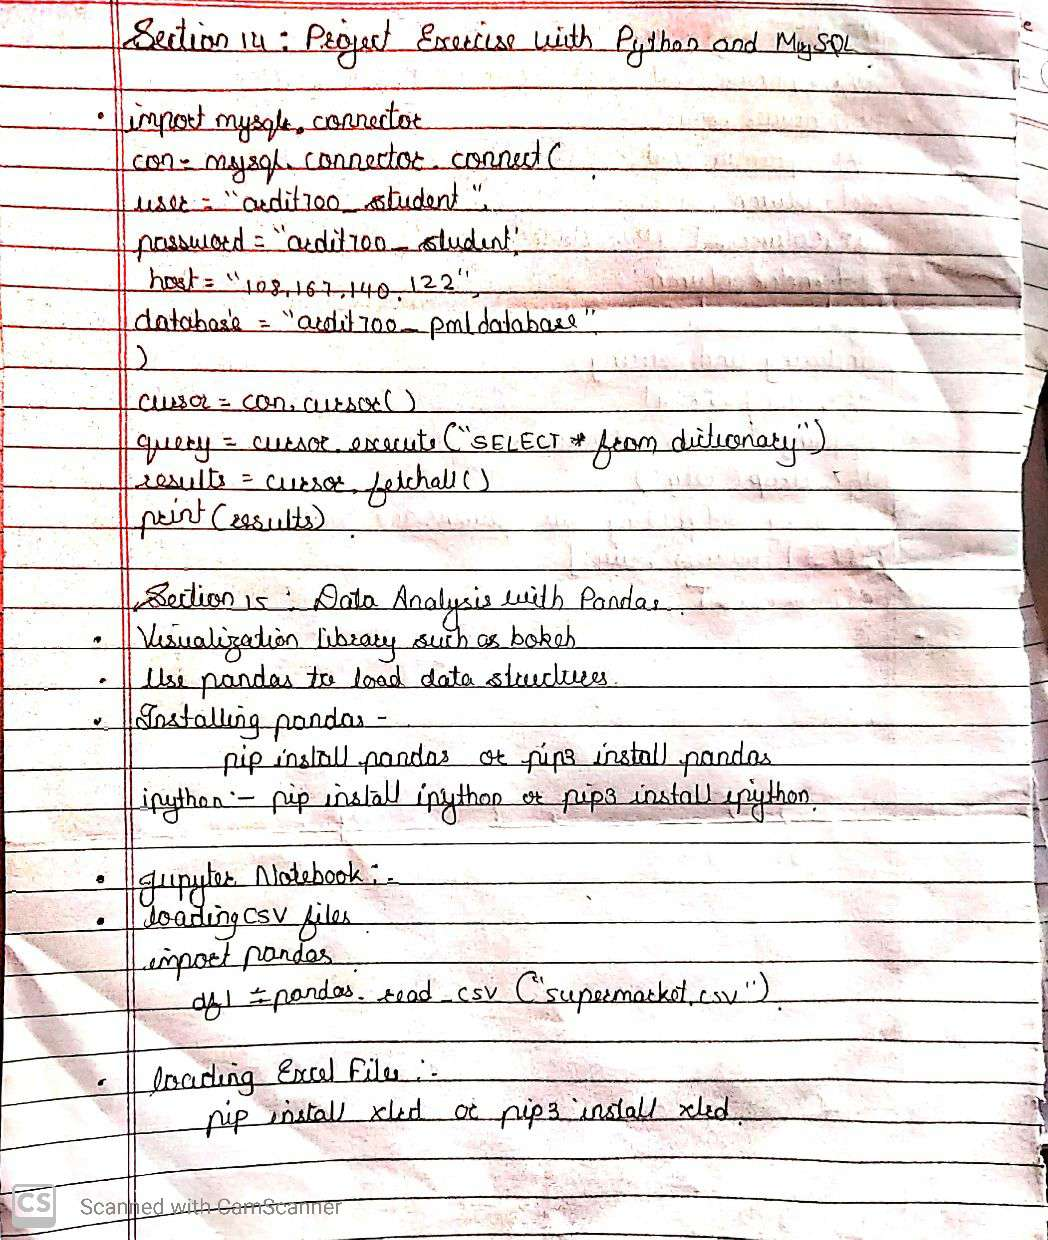 Section 14 : Project Exercise with Python and MySQL
• import mysql. connector
con = mysql. connector. connect (
user = "ardit700_student",
password = "ardit700_student",
host = "108.167.140.122",
database = "ardit700_pmldatabase"
)
cursor = con. cursor()
query = cursor. execute ("SELECT * from dictionary")
results = cursor. fetchall ()
print (results)
Section 15 : Data Analysis with Pandas
• Visualization library such as bokeh
• Use pandas to load data structures.
• Installing pandas -
pip install pandas or pip3 install pandas
ipython :- pip install ipython or pip3 install ipython.
• Jupyter Notebook :-
• loading CSV files
import pandas
df1 = pandas. read_csv ("supermarket.csv")
• loading Excel Files :-
pip install xlrd or pip3 install xlrd.
CS Scanned with CamScanner